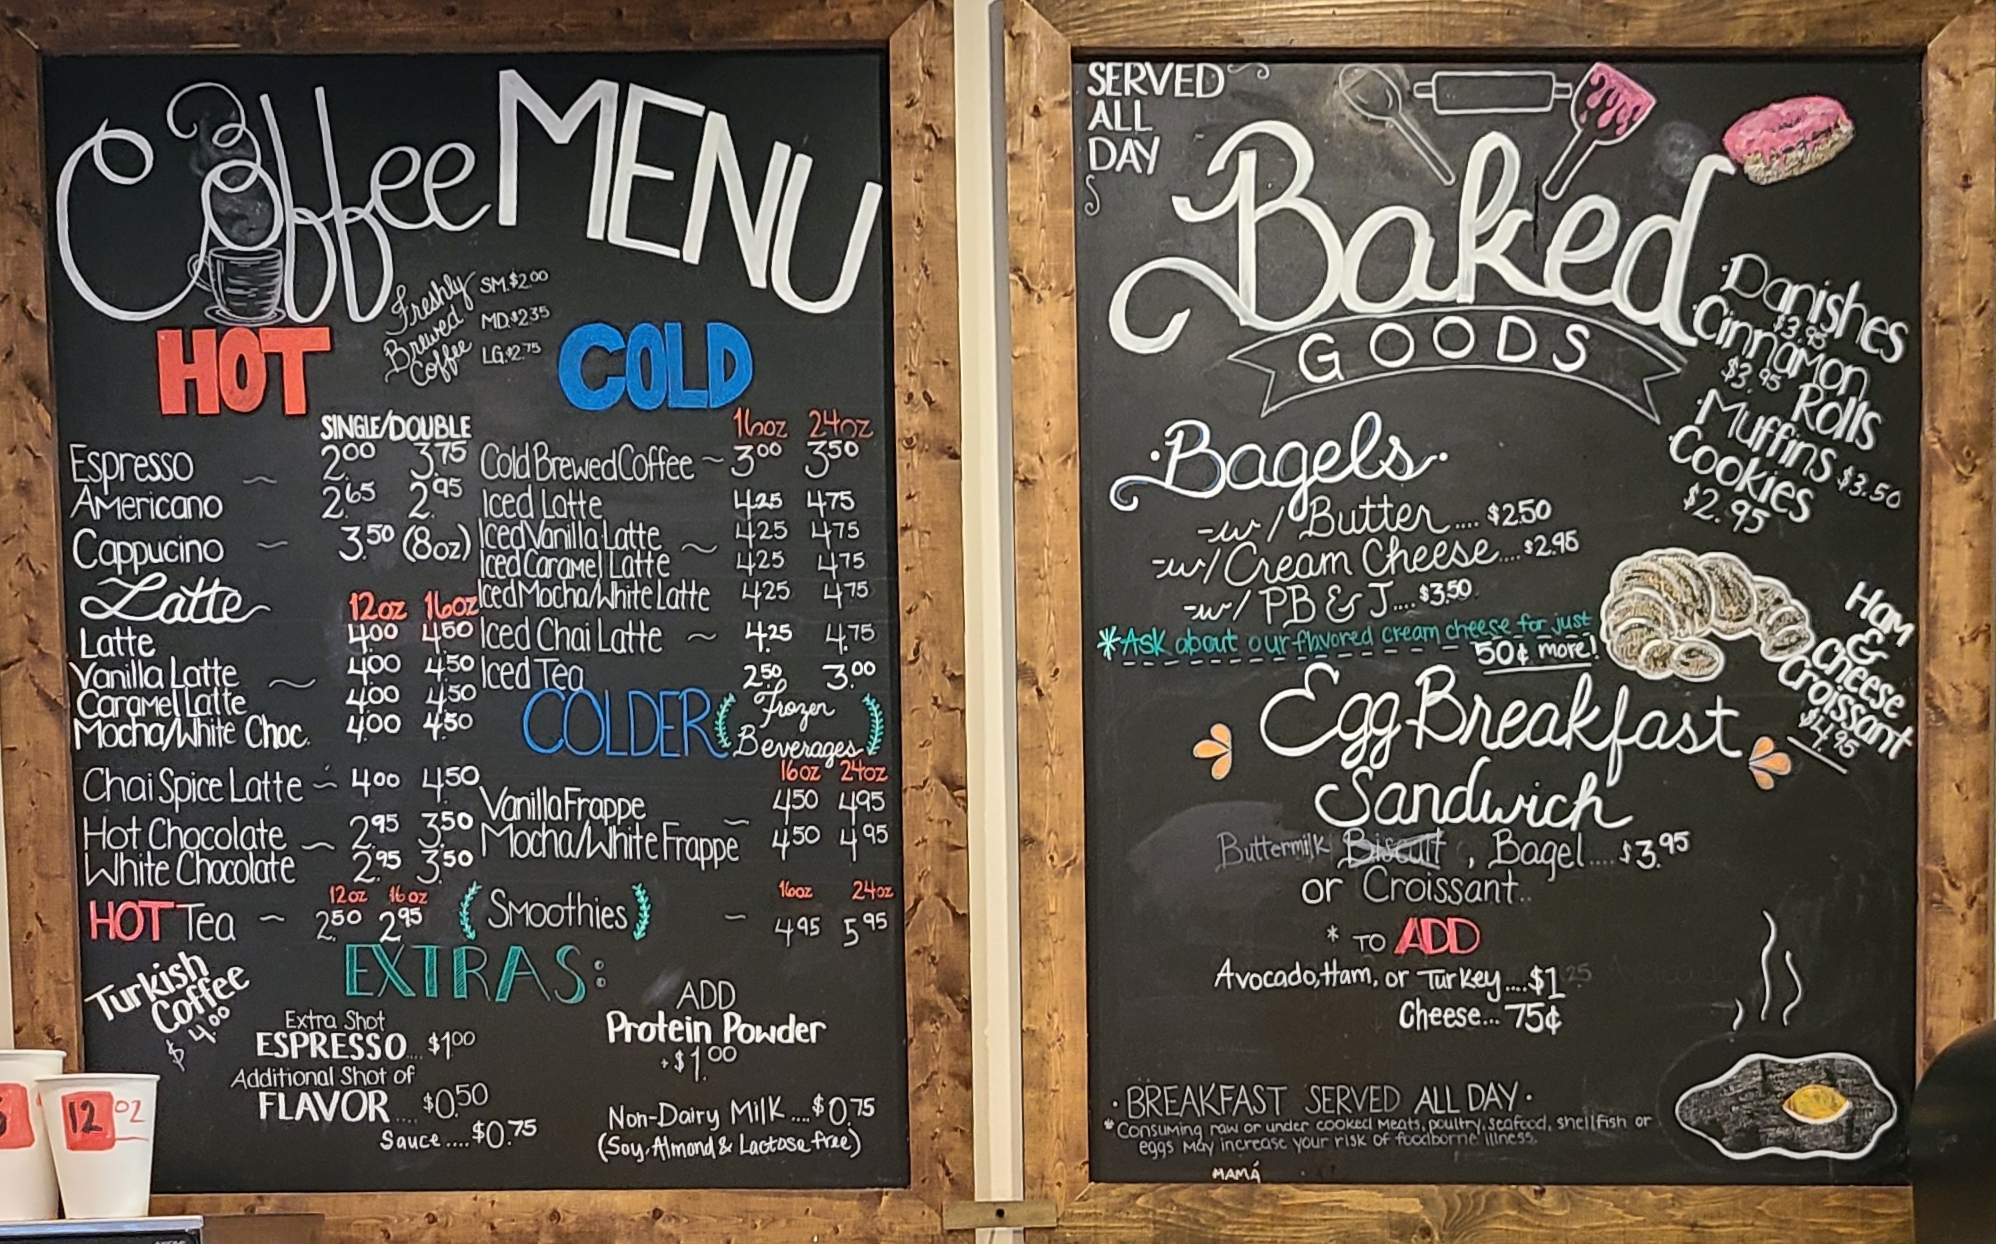 Coffee MENU
Freshly Brewed Coffee
SM. $2.00
MD. $2.35
LG. $2.75
HOT
SINGLE/DOUBLE
Espresso ~ 2.00 3.75
Americano 2.65 2.95
Cappucino ~ 3.50 (8oz)
Latte
12oz 16oz
Latte 4.00 4.50
Vanilla Latte ~ 4.00 4.50
Caramel Latte 4.00 4.50
Mocha/White Choc. 4.00 4.50
Chai Spice Latte ~ 4.00 4.50
Hot Chocolate ~ 2.95 3.50
White Chocolate 2.95 3.50
12oz 16oz
HOT Tea ~ 2.50 2.95
Turkish
Coffee
$4.00
COLD
16oz 24oz
Cold Brewed Coffee ~ 3.00 3.50
Iced Latte 4.25 4.75
Iced Vanilla Latte ~ 4.25 4.75
Iced Caramel Latte 4.25 4.75
Iced Mocha/White Latte 4.25 4.75
Iced Chai Latte ~ 4.25 4.75
Iced Tea 2.50 3.00
COLDER (Frozen
Beverages)
16oz 24oz
Vanilla Frappe ~ 4.50 4.95
Mocha/White Frappe 4.50 4.95
16oz 24oz
(Smoothies) ~ 4.95 5.95
EXTRAS:
Extra Shot
ESPRESSO.... $1.00
Additional Shot of
FLAVOR.... $0.50
Sauce.... $0.75
ADD
Protein Powder
+$1.00
Non-Dairy Milk....$0.75
(Soy, Almond & Lactose free)
12 oz
SERVED
ALL
DAY
Baked
GOODS
·Danishes
$3.95
·Cinnamon
Rolls
$3.95
·Muffins $3.50
·Cookies
$2.95
·Bagels·
-w/ Butter.... $2.50
-w/ Cream Cheese.... $2.95
-w/ PB & J.... $3.50
*Ask about our flavored cream cheese for just
50¢ more!
Ham
&
Cheese
Croissant
$4.95
Egg Breakfast
Sandwich
Buttermilk Biscuit, Bagel.... $3.95
or Croissant..
* TO ADD
Avocado, Ham, or Turkey....$1.25
Cheese... 75¢
·BREAKFAST SERVED ALL DAY·
*Consuming raw or under cooked meats, poultry, seafood, shellfish or
eggs may increase your risk of foodborne illness.
MAMÁ